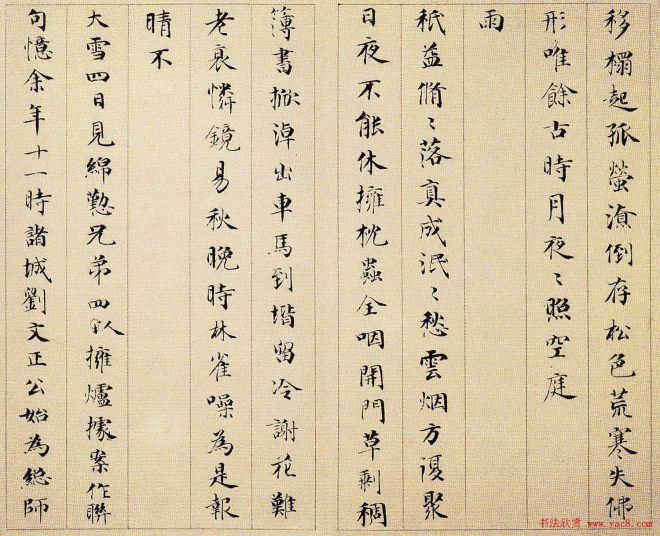 移榻起孤螢潦倒存松色荒寒失佛
形唯餘古時月夜〻照空庭
雨
秖益脩〻落真成泯〻愁雲烟方復聚
日夜不能休擁枕蟲全咽開門草剩稠
簿書掀淖出車馬到堦留冷謝花難
老衰憐鏡易秋晚時林雀噪為是報
晴不
大雪四日見綿懃兄弟四人擁爐據案作聯
句憶余年十一時諸城劉文正公始為總師
书法欣赏 www.yac8.com